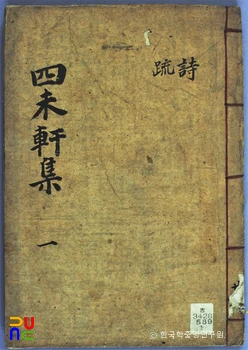 詩
疏
四未軒集
一
3428
589
ⓒ 한국학중앙연구원